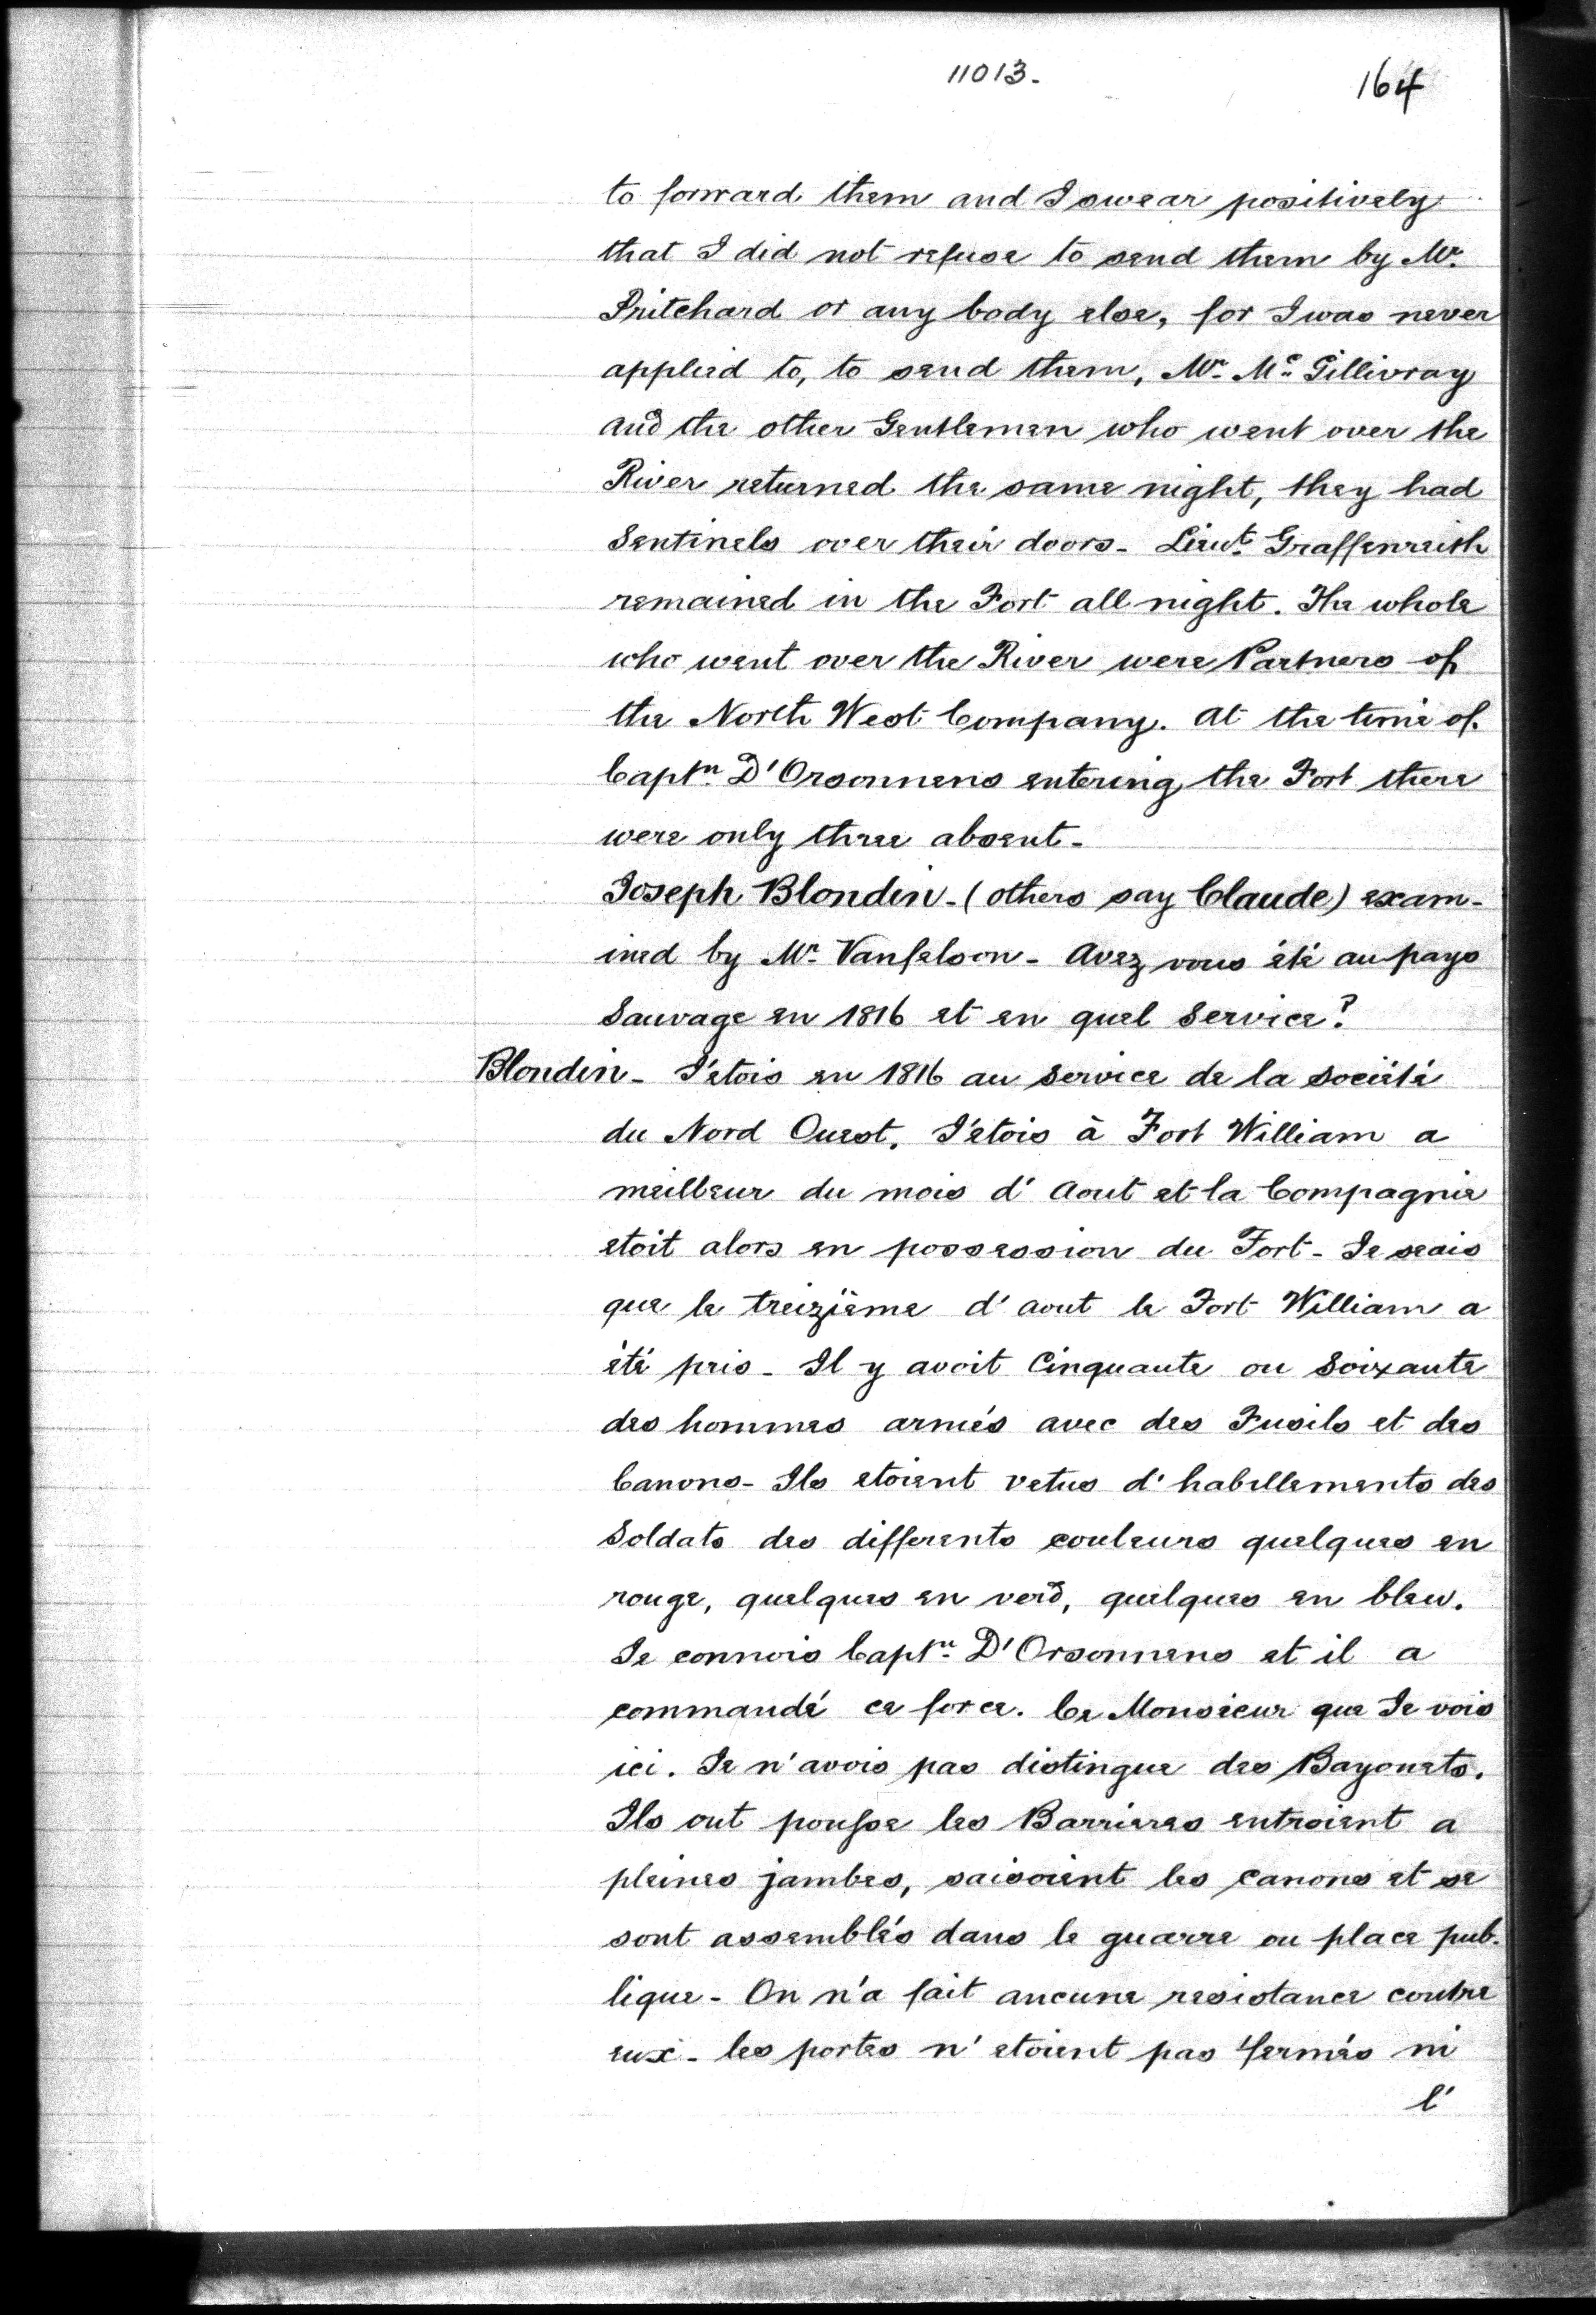 11013.
164
to forward them and I swear positively
that I did not refuse to send them by Mr.
Pritchard or any body else, for I was never
applied to, to send them, Mr. Mc. Gillivray
and the other Gentlemen who went over the
River returned the same night, they had
Sentinels over their doors - Lieut. Graffenreith
remained in the Fort all night. The whole
who went over the River were Partners of
the North West Company. At the time of
Captn. D'Orsonnens entering the Fort there
were only three absent -
Joseph Blondin - (others say Claude) exam-
ined by Mr. Vanfelson - Avez vous été au pays
Sauvage en 1816 et en quel Service?
Blondin - J'etois en 1816 au service de la société
du Nord Ouest. J'etois à Fort William a
meilleur du mois d' Aout et la Compagnie
etoit alors en possession du Fort - Je scais
que le treizième d' aout le Fort William a
été pris - Il y avoit Cinquante ou Soixante
des hommes armés avec des Fusils et des
Canons - Ils etoient vetus d' habillements des
Soldats des differents couleurs quelques en
rouge, quelques en verd, quelques en bleu.
Je connois Captn. D'Orsonnens et il a
commandé ce force. Ce Monsieur que Je vois
ici. Je n'avois pas distingue des Bayonets.
Ils ont pousse les Barrieres entroient a
pleines jambes, saisoient les canons et se
sont assemblés dans le quarre ou place pub-
lique - On n'a fait aucune resistance contre
eux - les portes n' etoient pas fermés ni
l'